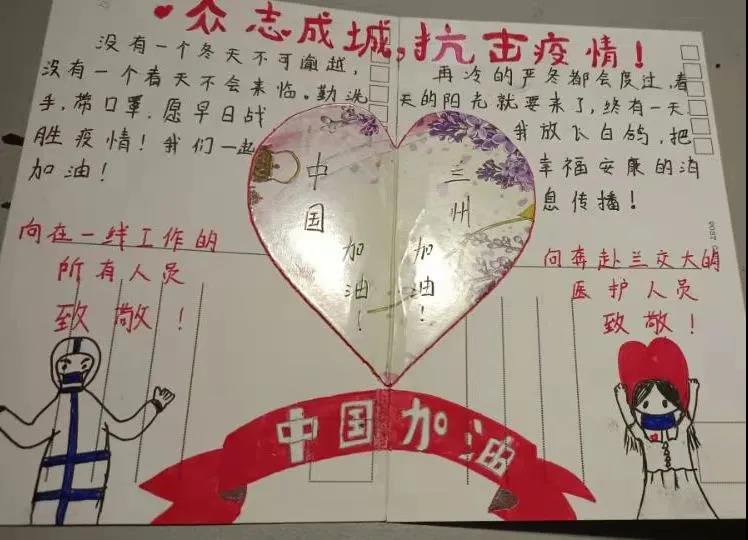 众志成城,抗击疫情！
没有一个冬天不可逾越,
没有一个春天不会来临.勤洗
手,带口罩.愿早日战
胜疫情！我们一起
加油！
再冷的严冬都会度过,春
天的阳光就要来了,终有一天.
我放飞白鸽,把
幸福安康的消
息传播！
中国
加油！
兰州
加油！
向在一线工作的
所有人员
致敬！
向奔赴兰交大的
医护人员
致敬！
中国加油